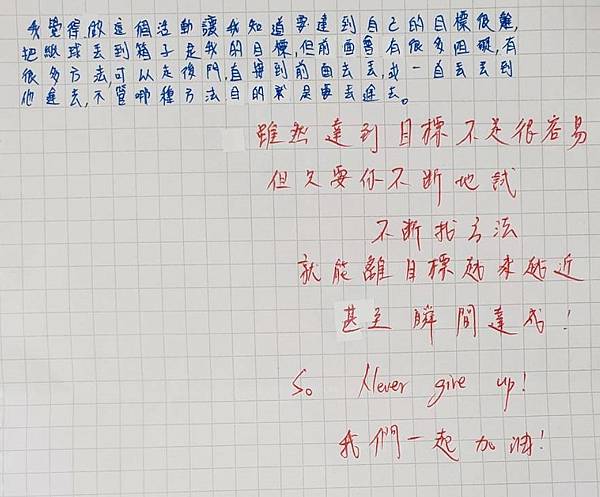 我覺得做這個活動讓我知道要達到自己的目標很難,
把紙球丟到箱子是我的目標,但前面會有很多阻礙,有
很多方法,可以走後門,直接到前面去丟,或一直丟丟到
他進去,不管哪種方法目的就是要丟進去。
雖然達到目標不是很容易
但只要你不斷地試
不斷找方法
就能離目標越來越近
甚至瞬間達成!
So Never give up!
我們一起加油!